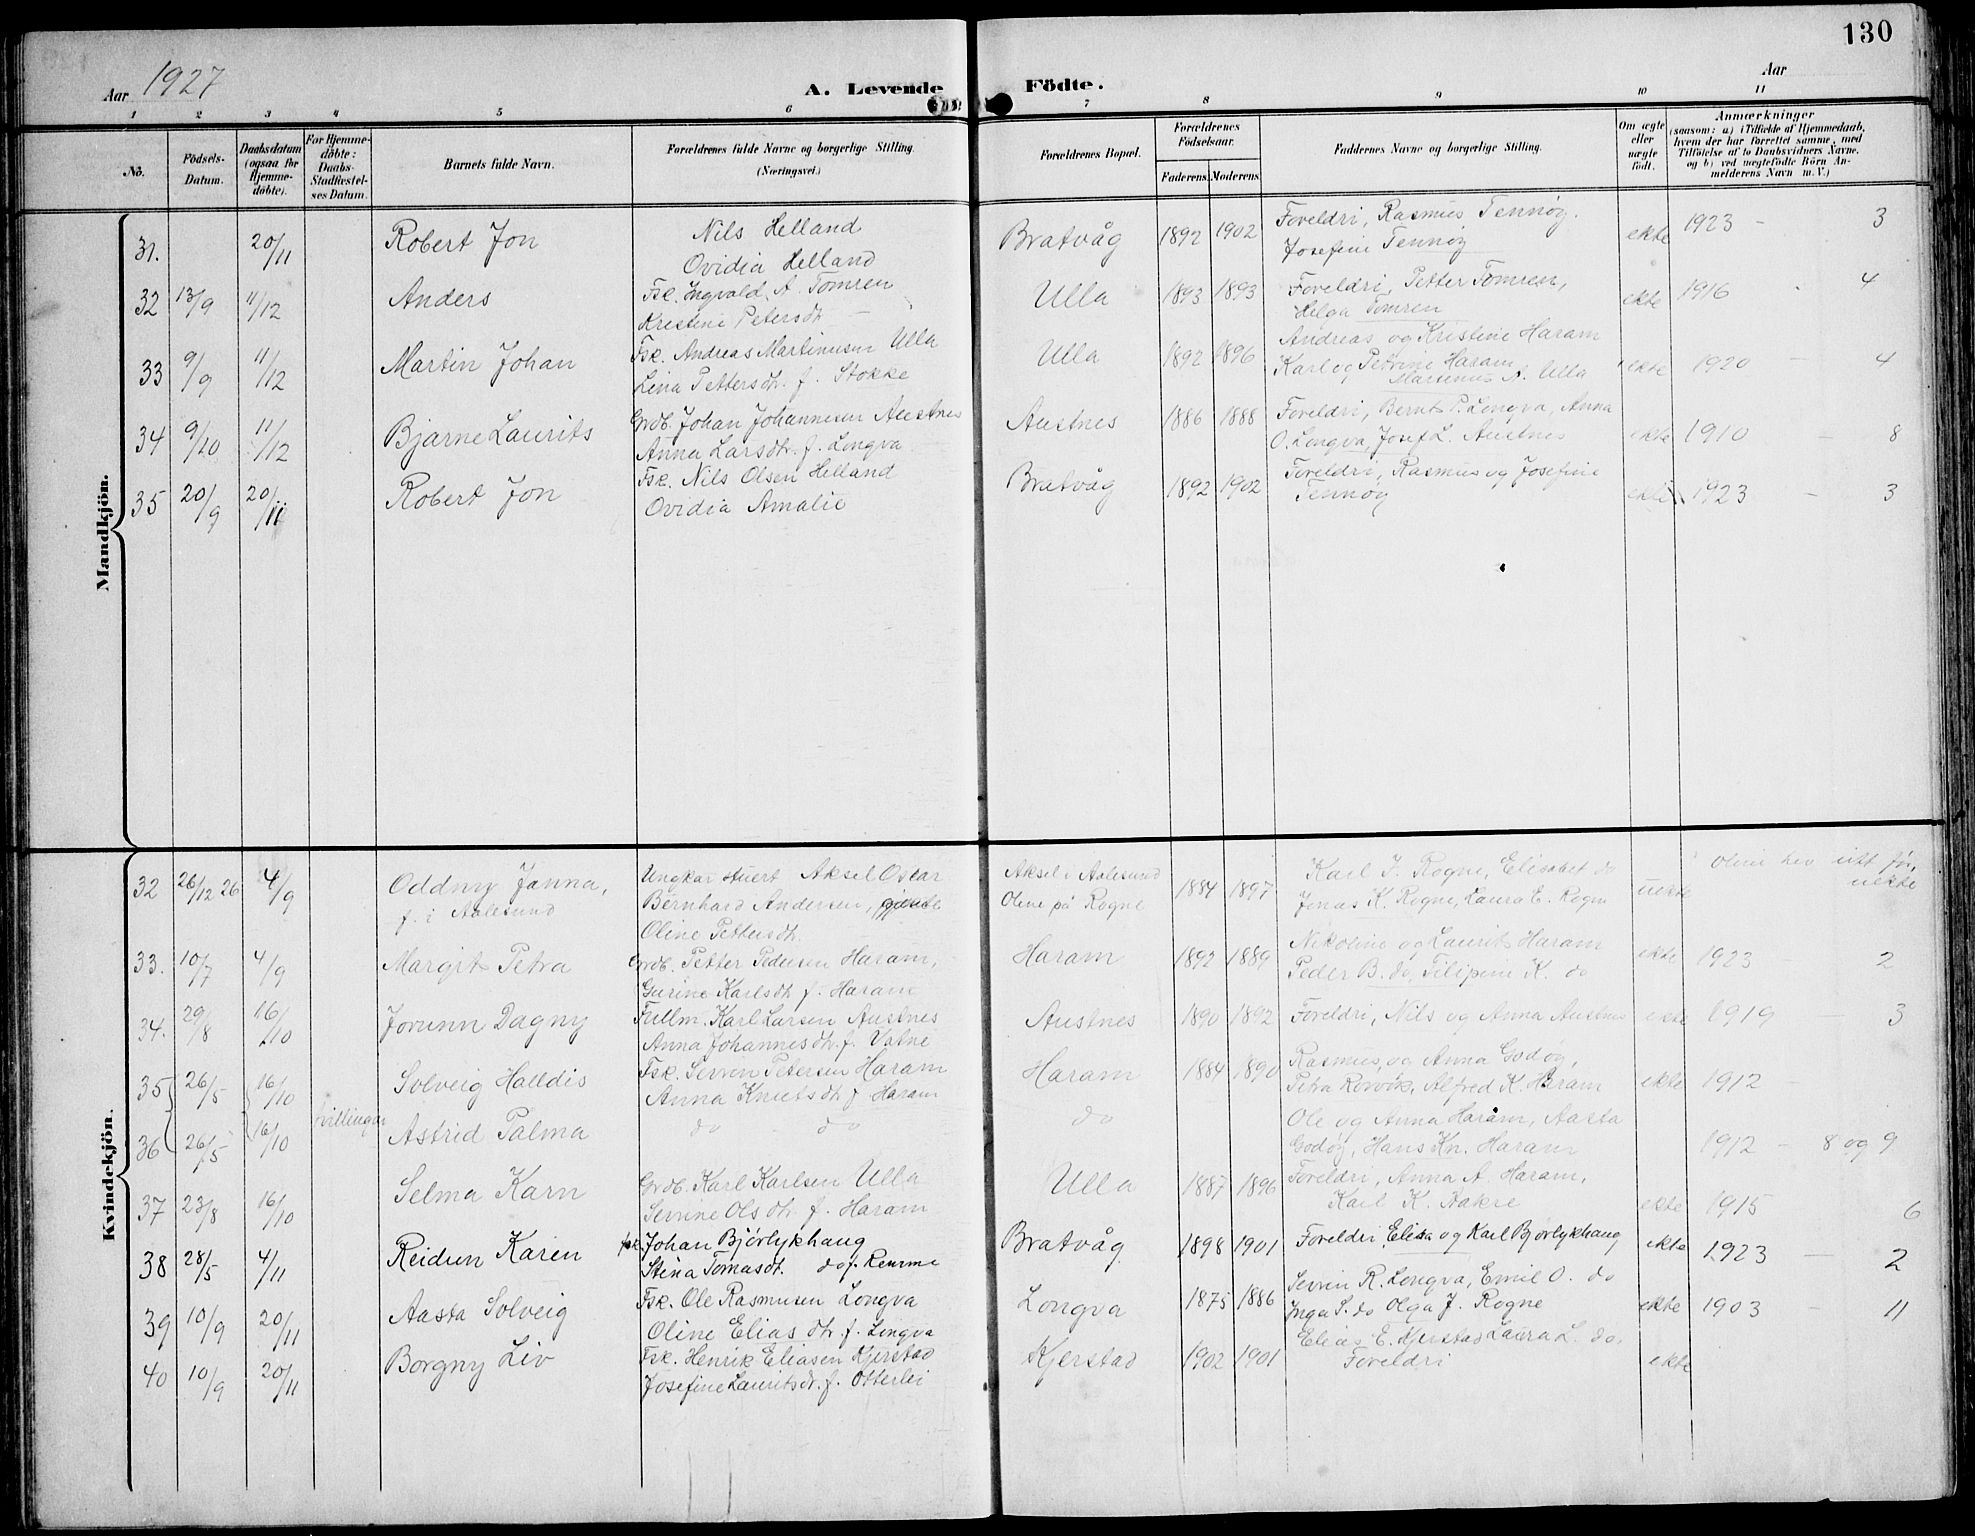 130
Aar 1927
A. Levende Födte.
Aar
1 2 3 4 5 6 7 8 9 10 11
No.
Födsels-Datum.
Daabsdatum (ogsaa for Hjemme-döbte).
For Hjemme-döbte: Daabs-Stadfæstel-ses Datum.
Barnets fulde Navn.
Forældrenes fulde Navne og borgerlige Stilling.
(Næringsvei.)
Forældrenes Bopæl.
Forældrenes Födselsaar.
Faderens. Moderens.
Faddernes Navne og borgerlige Stilling.
Om ægte eller uægte födt.
Anmærkninger
(saasom: a) i Tilfælde af Hjemmedaab, hvem der har forrettet samme, med Tilföielse af to Daabsvidners Navne. og b) ved uægtefödte Börn An-melderens Navn m. V.)
Mandkjön.
31. 20/11 Robert Jon Nils Helland Bratvåg 1892 1902 Foreldri, Rasmus Tennøy. ekte 1923 – 3
Ovidia Helland Josefine Tennøy
32 13/9 11/12 Anders Fsk. Ingvald A. Tomren Ulla 1893 1893 Foreldri, Petter Tomren, ekte 1916 4
Kristine Petersdt — Helga Tomren
33 9/9 11/12 Martin Johan Fsk. Andreas Martinusen Ulla Ulla 1892 1896 Andreas og Kristine Haram ekte 1920 – 4
Lina Pettersdtr. f. Stokke Karl og Petrine Haram
Martinus A. Ulla
34 9/10 11/12 Bjarne Laurits Grdb. Johan Johannesen Austnes Austnes 1886 1888 Foreldri, Bernt P. Longva, Anna ekte 1910 – 8
Anna Larsdtr. f. Longva O. Longva, Josef L. Austnes
35 20/9 20/11 Robert Jon Fsk. Nils Olsen Helland Bratvåg 1892 1902 Foreldri, Rasmus og Josefine ekte 1923 – 3
Ovidia Amalie Tennøy
Kvindekjön.
32 26/12 26 4/9 Oddny Janna, Ungkar stuert Aksel Oskar Aksel i Aalesund 1884 1897 Karl J. Rogne, Elisabet do uekte Oline hev eitt før,
f. i Aalesund Bernhard Andersen, gjente Oline på Rogne Jonas K. Rogne, Laura E. Rogne uekte
Oline Pettersdtr.
33. 10/7 4/9 Margit Petra Grdb. Petter Pedersen Haram, Haram 1892 1889 Nikoline og Laurits Haram ekte 1923 – 2
Gurine Karlsdtr f. Haram Peder B. do, Filipine K. do
34. 29/8 16/10 Jorunn Dagny Fullm. Karl Larsen Austnes Austnes 1890 1892 Foreldri, Nils og Anna Austnes ekte 1919 — 3
Anna Johannesdtr. f. Vatne
35 26/5 16/10 Solveig Halldis Fsk. Severin Petersen Haram Haram 1884 1890 Rasmus og Anna Godøy, ekte 1912 –
Anna Knutsdtr f. Haram Petra Alfred K. Haram
tvillingar
36 26/5 16/10 Astrid Palma do do do Ole og Anna Haram, Aasta 1912 – 8 og 9
Godøy, Hans Kn. Haram
37 23/8 16/10 Selma Karn Grdb. Karl Karlsen Ulla Ulla 1887 1896 Foreldri, Anna A. Haram, ekte 1915 6
Severine Olsdtr f. Haram Karl K. Aakre
38 28/5 4/11 Reidun Karen fsk. Johan Bjørlykhaug Bratvåg 1898 1901 Foreldri Elisa og Karl Bjørlykhaug ekte 1923 — 2
Stina Tomasdt. do f.
39 10/9 20/11 Aasta Solveig Fsk. Ole Rasmusen Longva Longva 1875 1886 Severin R. Longva, Emil O. do ekte 1903 – 11
Oline Eliasdtr. f. Longva Inga S. do Olga J. Rogne
40 10/9 20/11 Borgny Liv Fsk. Henrik Eliasen Kjerstad Kjerstad 1902 1901 Elias E. Kjerstad Laura L. do. ekte
Josefine Lauritsdtr. f. Otterlei Foreldri